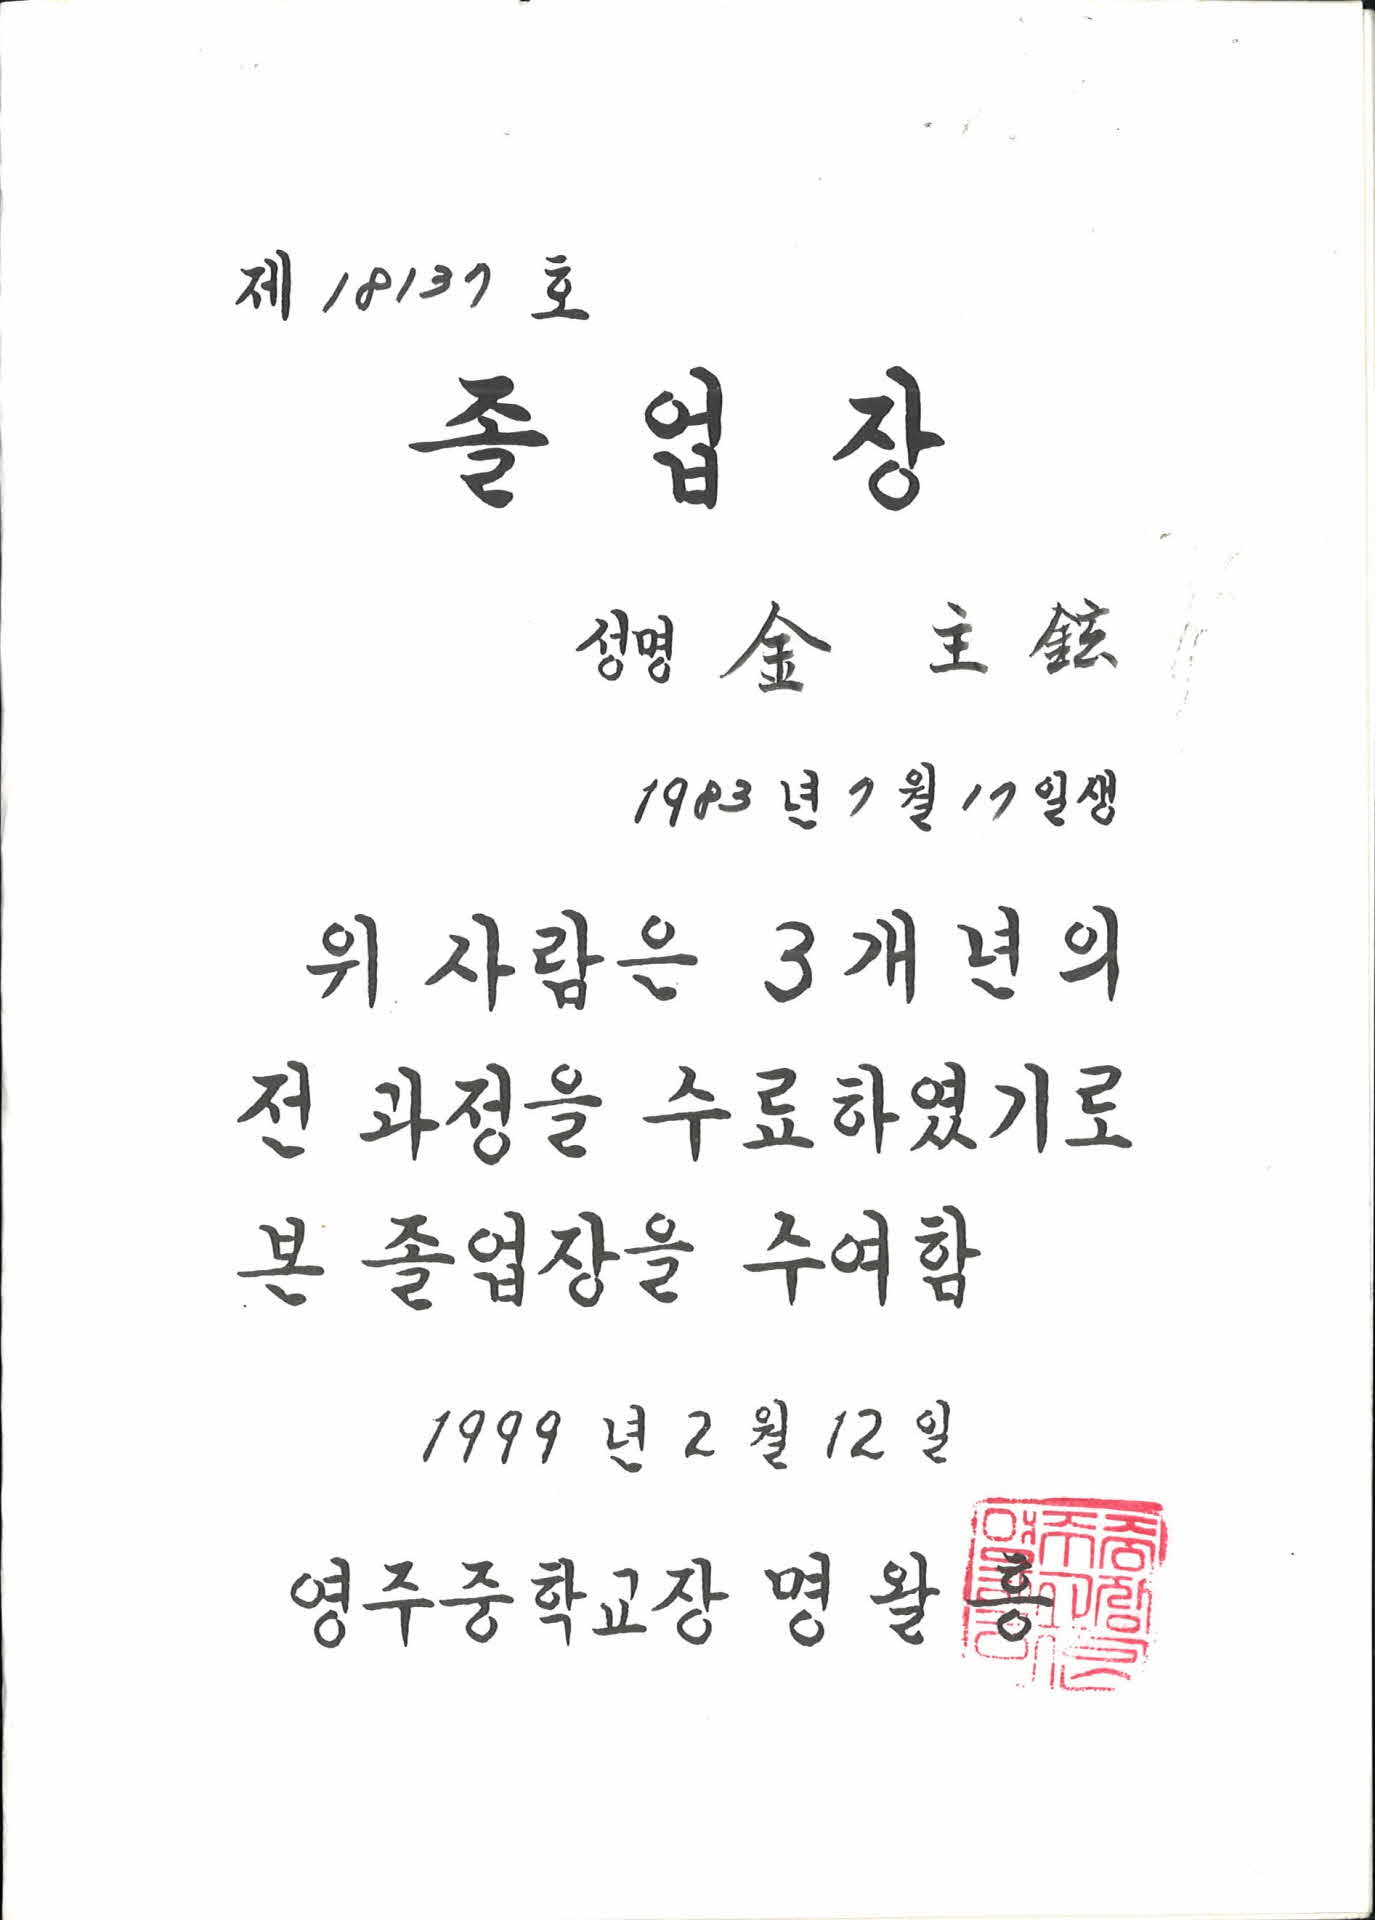 제 18137 호
졸업장
성명 金 主 鉉
1983년 7월 17일생
위 사람은 3개년의
전 과정을 수료하였기로
본 졸업장을 수여함
1999년 2월 12일
영주중학교장 명 왈 흥